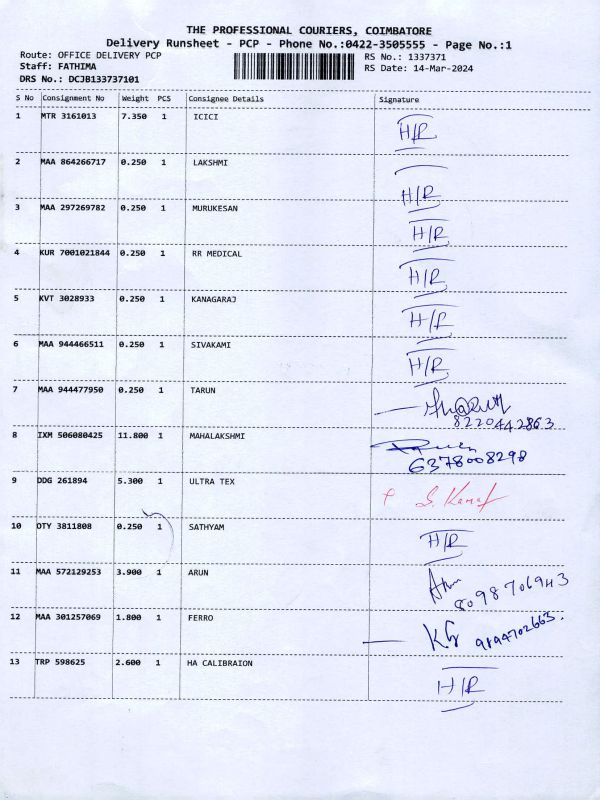 THE PROFESSIONAL COURIERS, COIMBATORE
Delivery Runsheet - PCP - Phone No.:0422-3505555 - Page No.:1
Route: OFFICE DELIVERY PCP RS No.: 1337371
Staff: FATHIMA RS Date: 14-Mar-2024
DRS No.: DCJB133737101
S No Consignment No Weight PCS Consignee Details Signature
1 MTR 3161013 7.350 1 ICICI H/R
2 MAA 864266717 0.250 1 LAKSHMI H/R
3 MAA 297269782 0.250 1 MURUKESAN H/R
4 KUR 7001021844 0.250 1 RR MEDICAL H/R
5 KVT 3028933 0.250 1 KANAGARAJ H/R
6 MAA 944466511 0.250 1 SIVAKAMI H/R
7 MAA 944477950 0.250 1 TARUN
8220442863
8 IXM 506080425 11.800 1 MAHALAKSHMI
6378008298
9 DDG 261894 5.300 1 ULTRA TEX
10 OTY 3811808 0.250 1 SATHYAM H/R
11 MAA 572129253 3.900 1 ARUN Arun
8098706943
12 MAA 301257069 1.800 1 FERRO KG 9894702663.
13 TRP 598625 2.600 1 HA CALIBRAION H/R